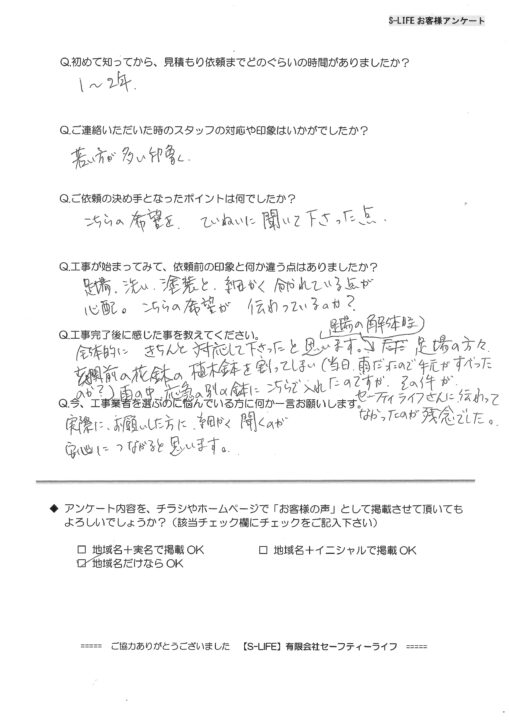 S-LIFE お客様アンケート
Q.初めて知ってから、見積もり依頼までどのぐらいの時間がありましたか？
1〜2年.
Q.ご連絡いただいた時のスタッフの対応や印象はいかがでしたか？
若い方が多い印象く.
Q.ご依頼の決め手となったポイントは何でしたか？
こちらの希望を、ていねいに聞いて下さった点.
Q.工事が始まってみて、依頼前の印象と何か違う点はありましたか？
足場、洗い、塗装と、細かく分かれている点が
心配。こちらの希望が 伝わっているのか？
Q.工事完了後に感じた事を教えてください。
(足場の解体時)
全体的に きちんと対応して下さったと思います。ただ 足場の方々
玄関前の花鉢の植木鉢を割ってしまい(当日、雨だったので手元がすべった
のか？)雨の中、応急の別の鉢にこちらで入れたのですが、その件が、
セーフティライフさんに伝わって
なかったのが残念でした。
Q.今、工事業者を選ぶのに悩んでいる方に何か一言お願いします。
実際に、お願いした方に、細かく聞くのが
安心につながると思います。
◆ アンケート内容を、チラシやホームページで「お客様の声」として掲載させて頂いても
よろしいでしょうか？（該当チェック欄にチェックをご記入下さい）
□ 地域名＋実名で掲載OK □ 地域名＋イニシャルで掲載OK
☑ 地域名だけならOK
===== ご協力ありがとうございました 【S-LIFE】有限会社セーフティーライフ =====